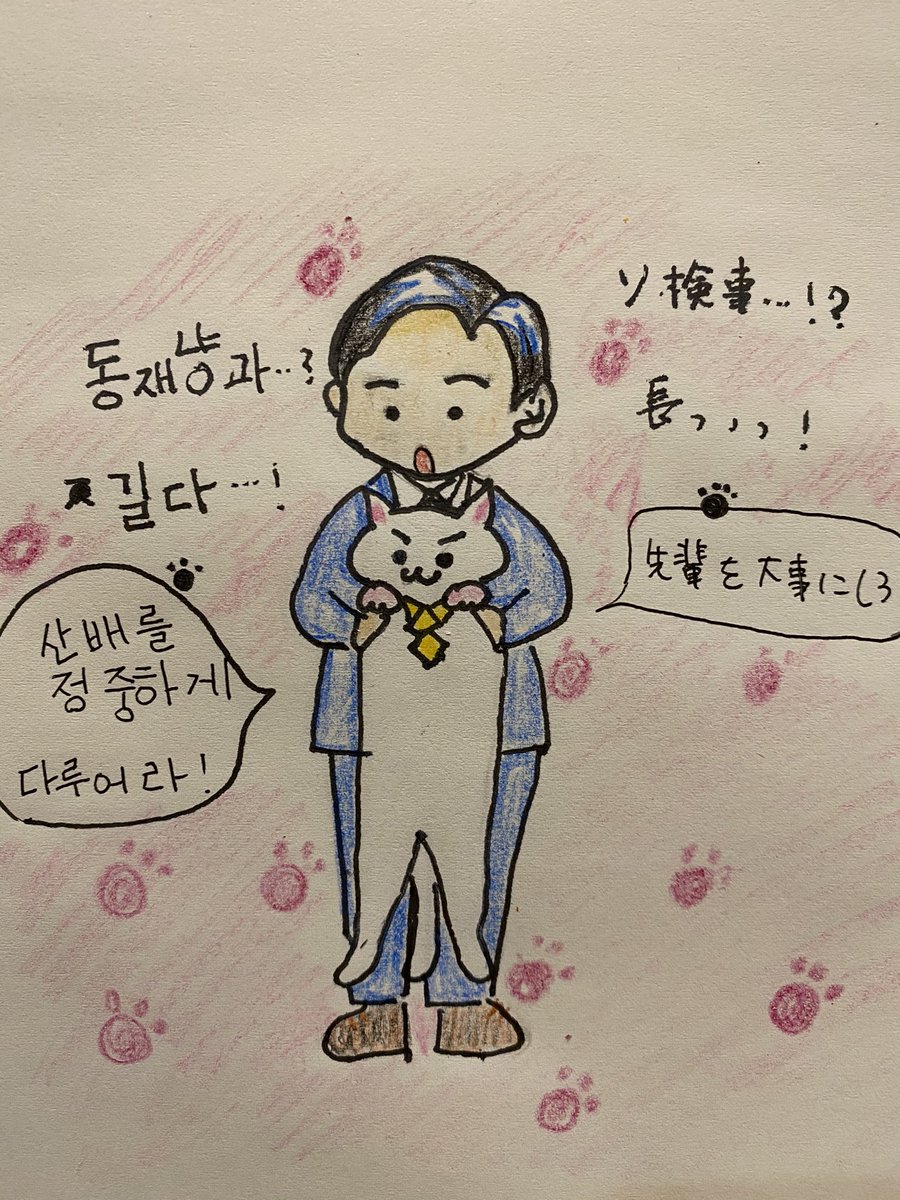 동재냥과..?
길다...!
산배를
정중하게
다루어라!
ソ検事...!?
長っっっ!
先輩を大事にしろ